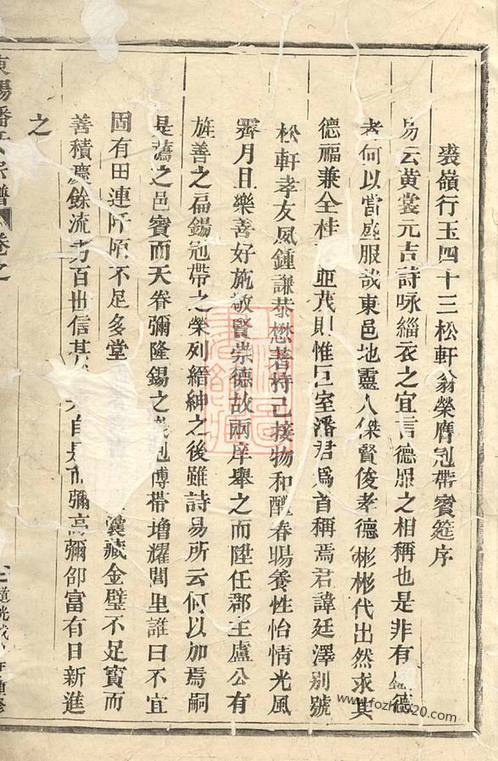 裘嶺行玉四十三松軒翁榮膺冠帶賓筵序
易云黃裳元吉詩咏緇衣之宜言德服之相稱也是非有德
者何以當座服哉東邑地靈人傑賢俊孝德彬彬代出然求其
德福兼全桂亚茂則惟巨室潘君爲首稱焉君諱廷澤別號
松軒孝友夙鍾謙恭懋著持己接物和醴春暘養性怡情光風
霽月且樂善好施敬賢崇德故兩庠舉之而陞任郡主盧公有
旌善之匾錫冠帶之榮列縉紳之後雖詩易所云何以加焉嗣
是薦之邑賓而天眷彌隆錫之冠博帶增耀閭里誰曰不宜
固有田連阡陌不足多堂囊藏金璧不足寶而
善積慶餘流方百世信其自是而彌高彌邵富有日新進
之
東陽潘氏宗譜 卷之
道光戊年重修
www.fozhu920.com